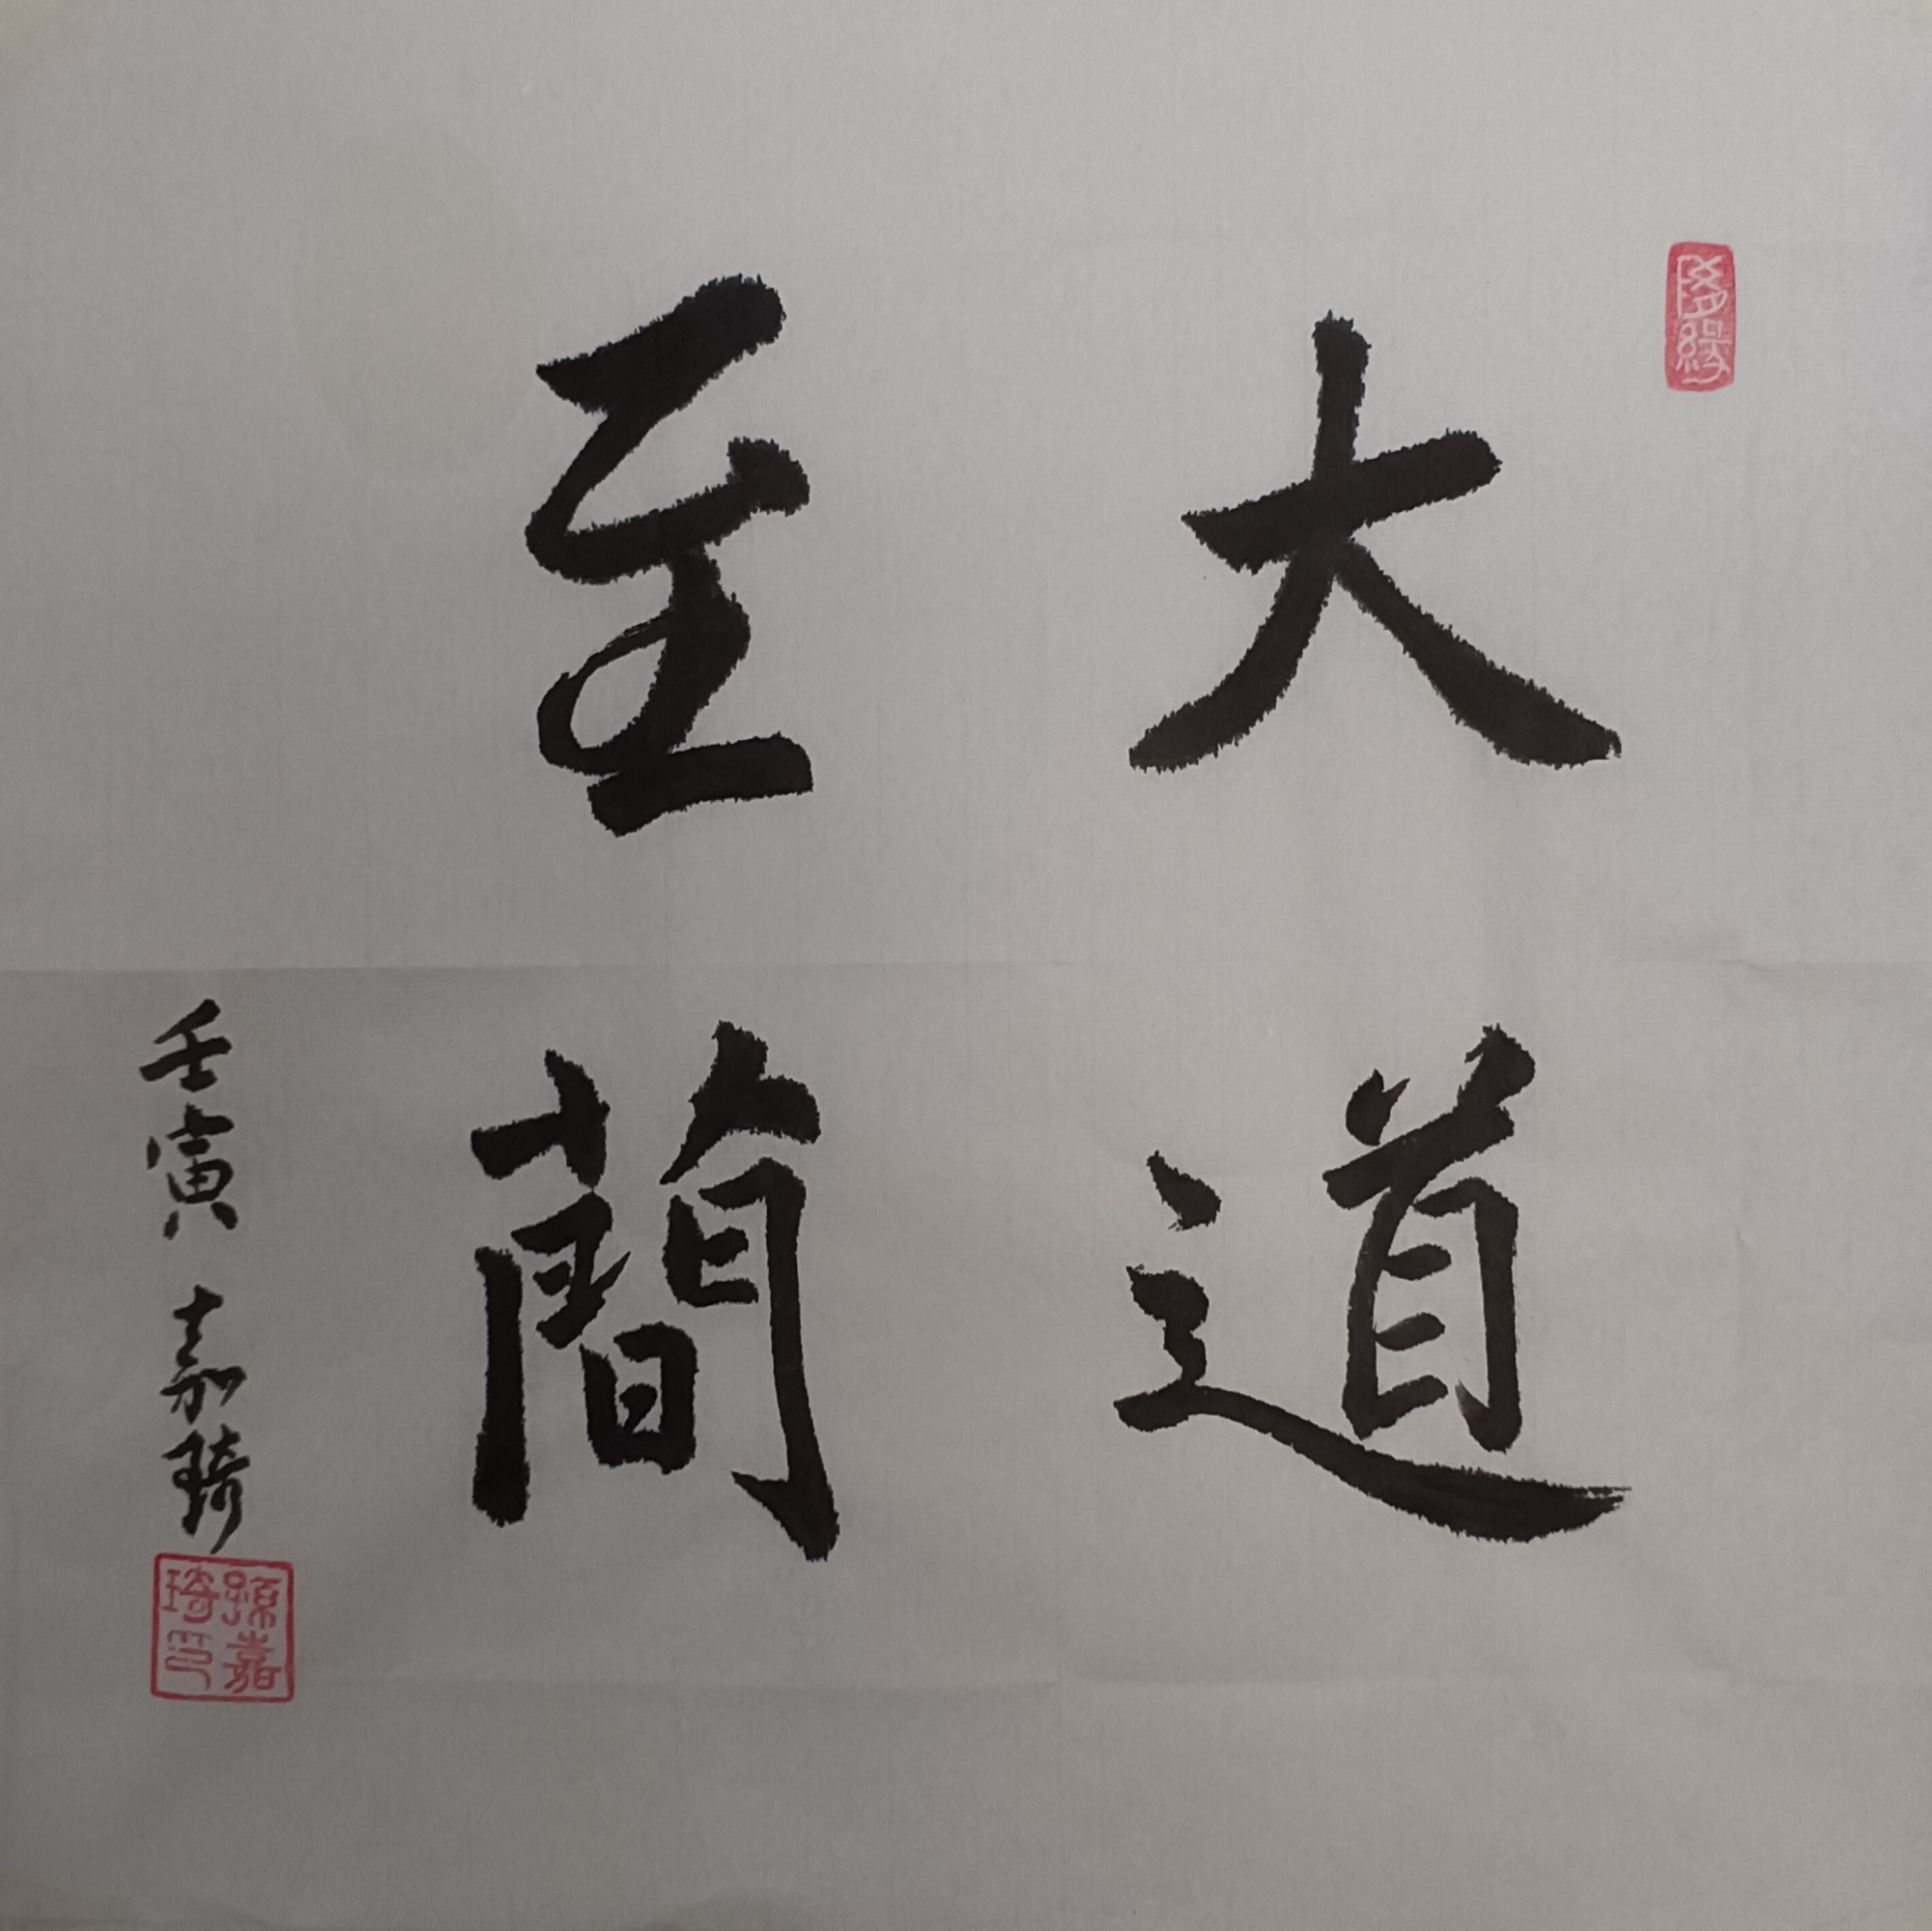 大道
至簡
壬寅 嘉琦
孫嘉
琦印